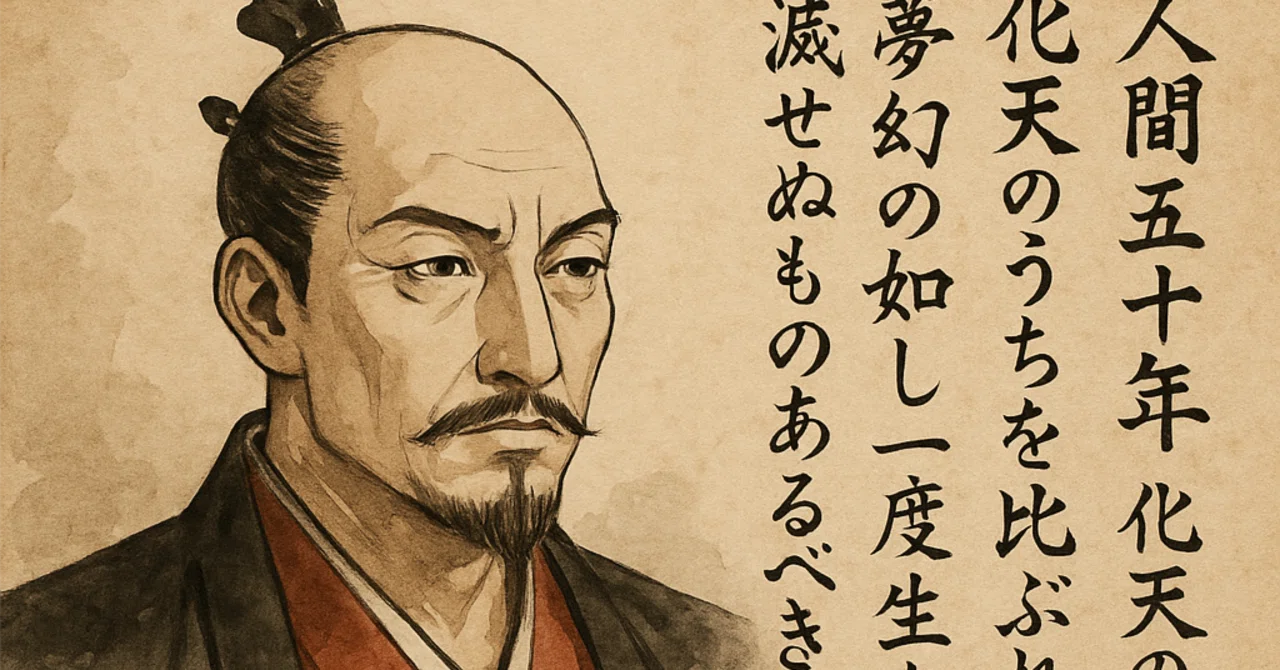 人間五十年 化天の
化天のうちを比ぶれ
夢幻の如し一度生
滅せぬものあるべき